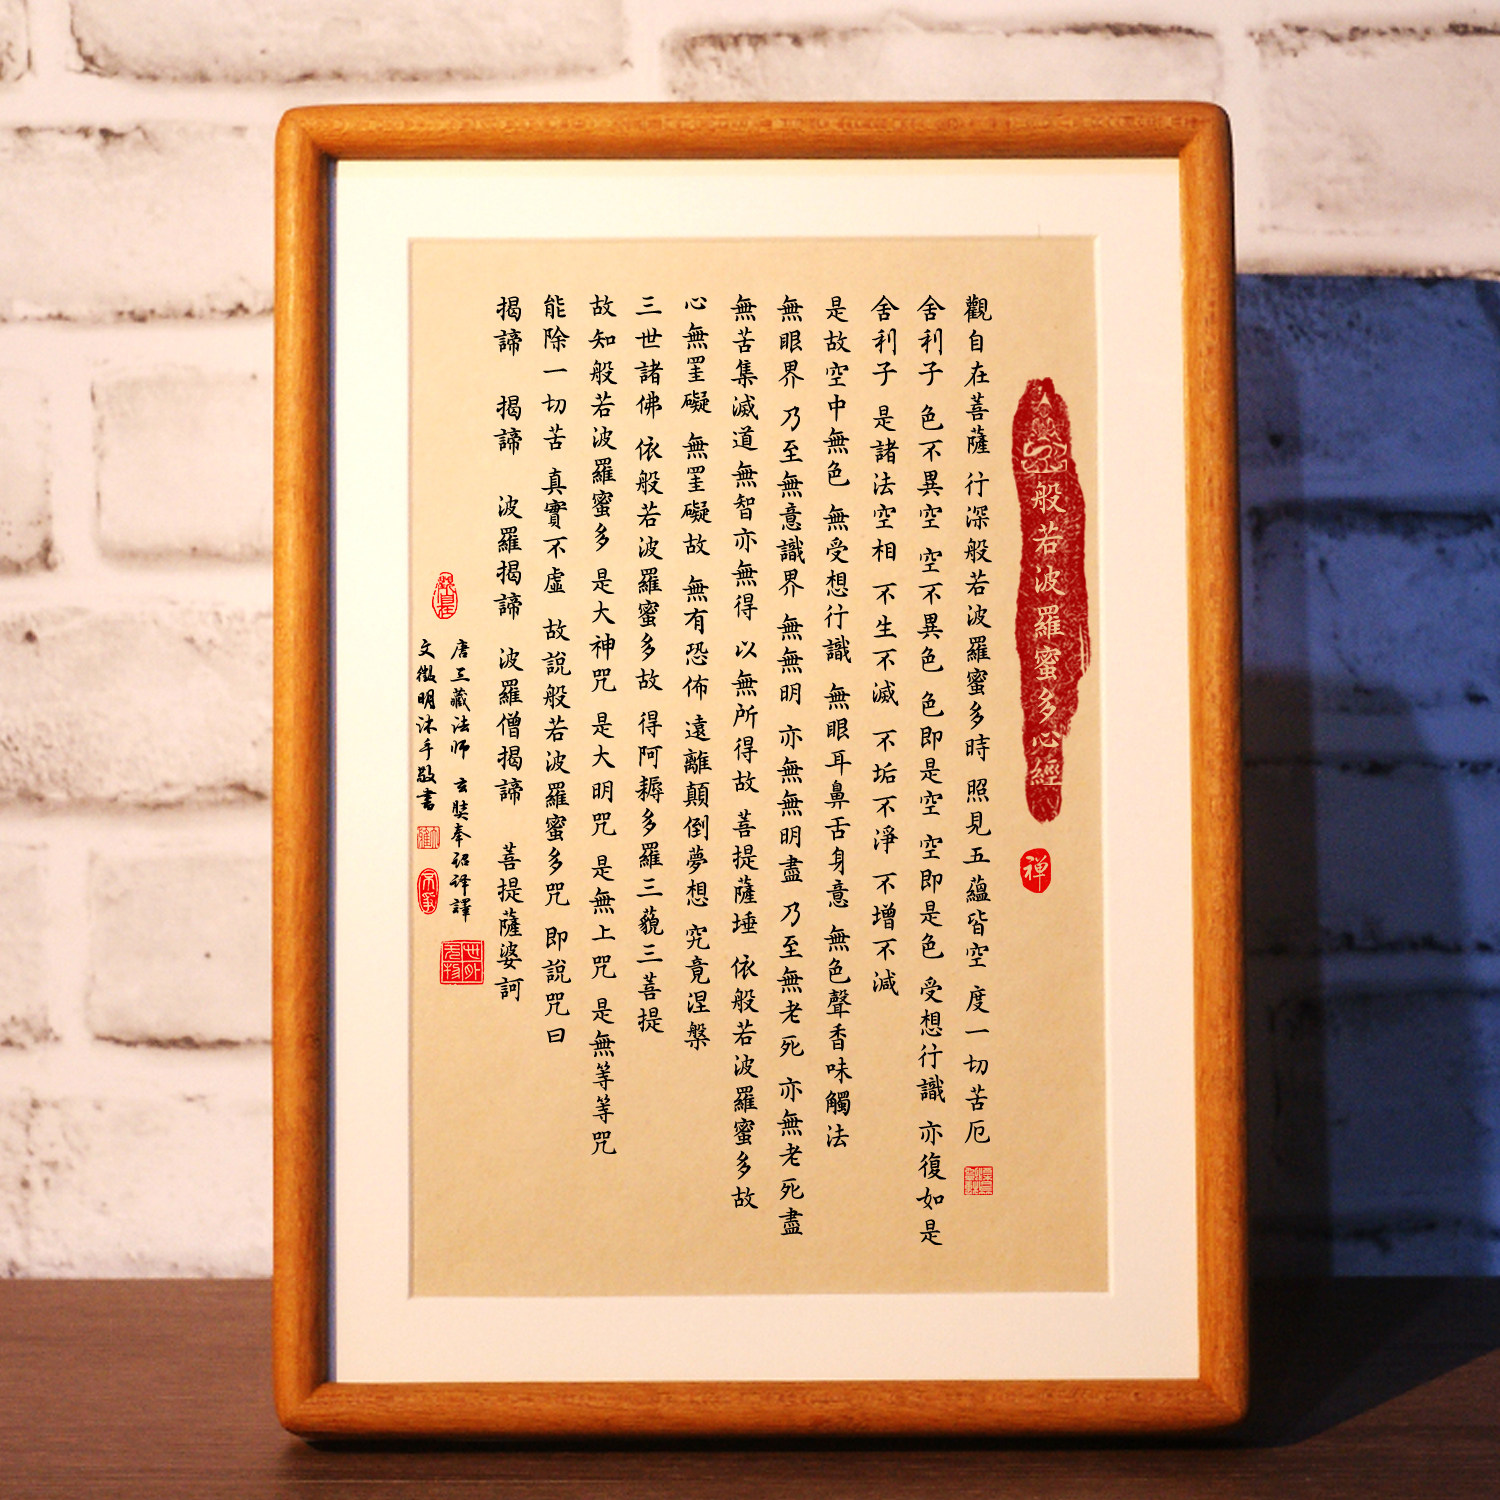 般若波羅蜜多心經
禅
觀自在菩薩 行深般若波羅蜜多時 照見五蘊皆空 度一切苦厄
舍利子 色不異空 空不異色 色即是空 空即是色 受想行識 亦復如是
舍利子 是諸法空相 不生不滅 不垢不淨 不增不減
是故空中無色 無受想行識 無眼耳鼻舌身意 無色聲香味觸法
無眼界 乃至無意識界 無無明 亦無無明盡 乃至無老死 亦無老死盡
無苦集滅道 無智亦無得 以無所得故 菩提薩埵 依般若波羅蜜多故
心無罣礙 無罣礙故 無有恐佈 遠離顛倒夢想 究竟涅槃
三世諸佛 依般若波羅蜜多故 得阿耨多羅三藐三菩提
故知般若波羅蜜多 是大神咒 是大明咒 是無上咒 是無等等咒
能除一切苦 真實不虛 故說般若波羅蜜多咒 即說咒曰
揭諦 揭諦 波羅揭諦 波羅僧揭諦 菩提薩婆訶
唐三藏法师 玄奘奉诏译譯
文徵明沐手敬書